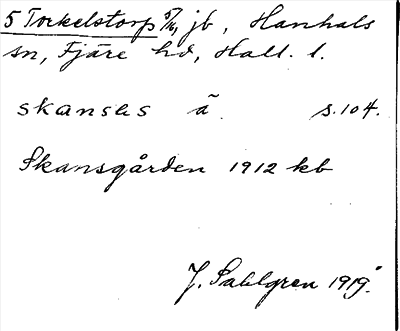 5 Torkelstorp 5/16 jb, Hanhals
sn, Fjäre hd, Hall. l.
skansəs ā s. 104.
Skansgården 1912 kb
J. Sahlgren 1919.